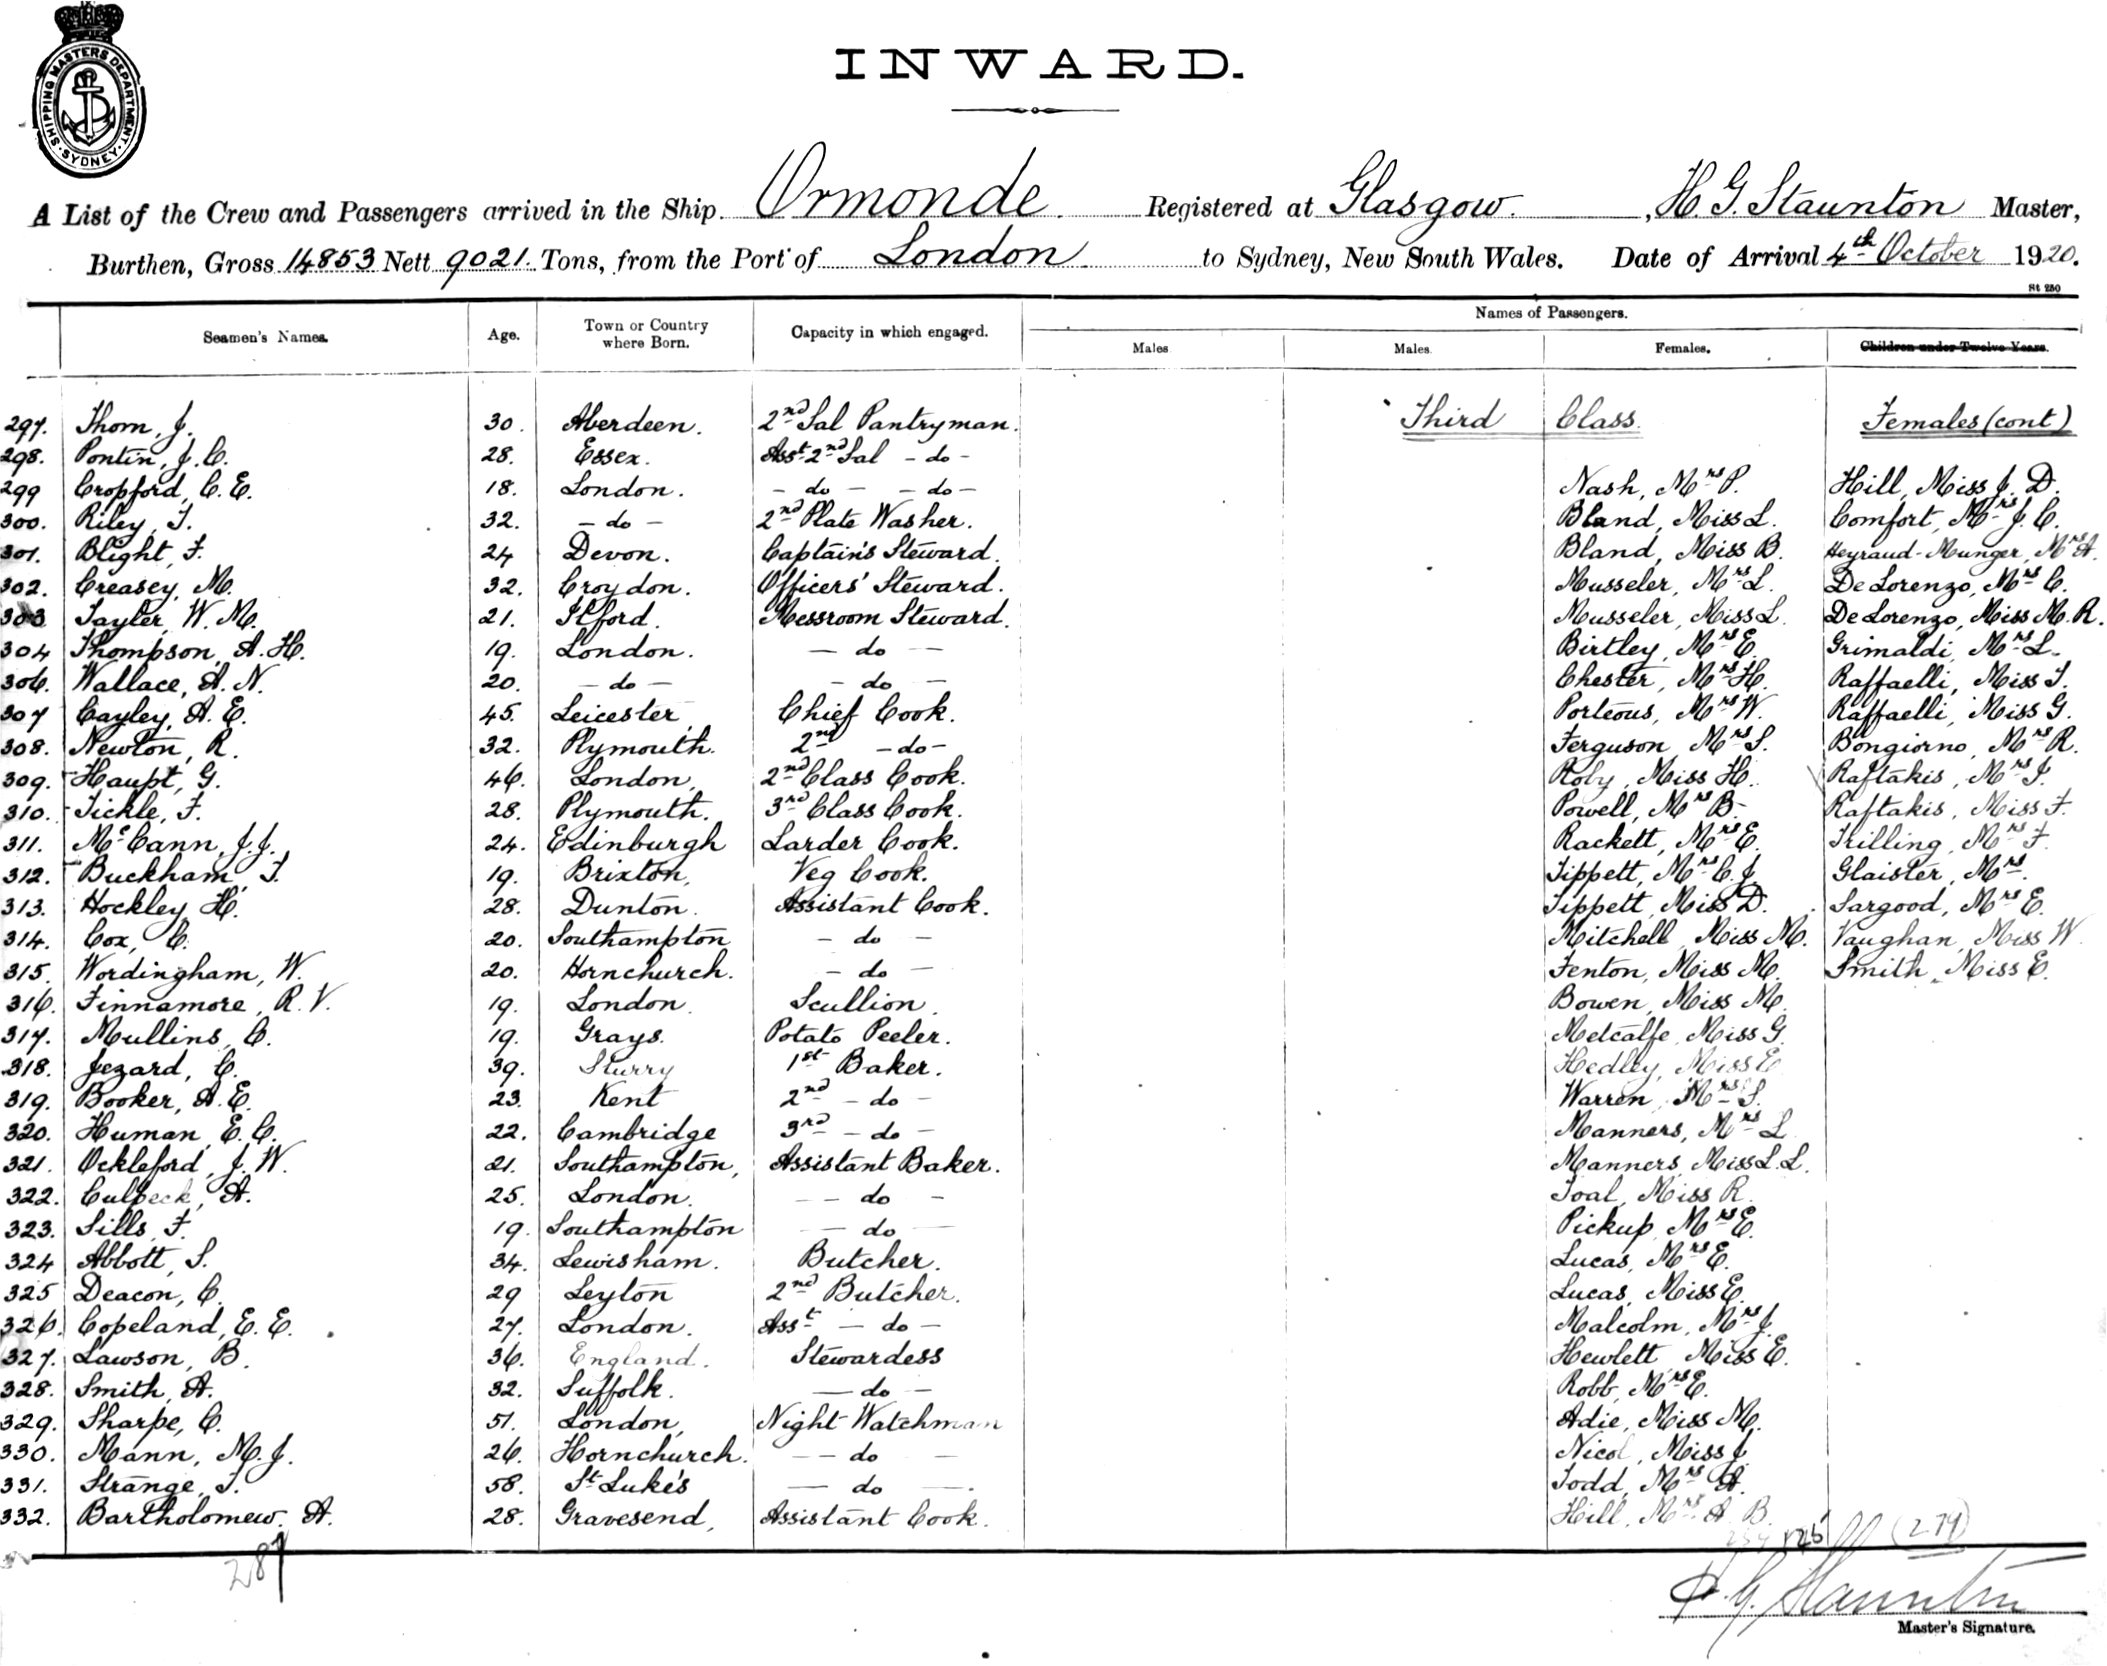 SHIPPING MASTERS DEPARTMENT SYDNEY
INWARD.
A List of the Crew and Passengers arrived in the Ship Ormonde Registered at Glasgow. , H. G. Staunton Master,
Burthen, Gross 14853 Nett 9021 Tons, from the Port of London to Sydney, New South Wales. Date of Arrival 4th October 1920.
St 250
Names of Passengers.
Seamen's Names. Age. Town or Country where Born. Capacity in which engaged. Males Males Females. Children under Twelve Years.
297. Thom, J. 30. Aberdeen. 2nd Sal Pantryman. Third Class. Females (cont)
298. Pontin, J. C. 28. Essex. Asst 2nd Sal - do -
299 Cropford, C. E. 18. London. - do - - do - Nash, Mrs P. Hill, Miss J. D.
300. Riley, T. 32. - do - 2nd Plate Washer. Bland, Miss L. Comfort, Mrs J. C.
301. Blight, F. 24 Devon. Captain's Steward. Bland, Miss B. Heyraud-Munger, Mrs A.
302. Creasey, M. 32. Croydon. Officers' Steward. Musseler, Mrs L. De Lorenzo, Mrs C.
303 Tayler W. M. 21. Ilford. Messroom Steward. Musseler, Miss L. De Lorenzo, Miss M. R.
304 Thompson, A. H. 19. London. - do - Birtley, Mrs E. Grimaldi, Mrs L.
306. Wallace, A. N. 20. - do - - do - Chester, Mrs H. Raffaelli, Miss T.
307 Cayley, A. E. 45. Leicester Chief Cook. Porteous, Mrs W. Raffaelli, Miss G.
308. Newton, R. 32. Plymouth. 2nd - do - Ferguson, Mrs S. Bongiorno, Mrs R.
309. Haupt, G. 46. London, 2nd Class Cook. Roby, Miss H. Raftakis, Mrs J.
310. Tickle, F. 28. Plymouth. 3rd Class Cook. Powell, Mrs B. Raftakis, Miss F.
311. McCann, J. J. 24. Edinburgh Larder Cook. Rackett, Mrs E. Trilling, Mrs F.
312. Buckham, T. 19. Brixton, Veg Cook. Tippett, Mrs C. J. Glaister, Mrs.
313. Hockley, H. 28. Dunton. Assistant Cook. Tippett, Miss D. Sargood, Mrs E.
314. Cox, C. 20. Southampton - do - Mitchell, Miss M. Vaughan, Miss W.
315. Wordingham, W. 20. Hornchurch. - do - Fenton, Miss M. Smith, Miss E.
316. Finnamore, R. V. 19. London. Scullion. Bowen, Miss M.
317. Mullins, C. 19. Grays. Potato Peeler. Metcalfe, Miss G.
318. Jezard, C. 39. Sturry 1st Baker. Hedley, Miss E.
319. Booker, A. E. 23. Kent 2nd - do - Warren, Mrs S.
320. Human, E. C. 22. Cambridge 3rd - do - Manners, Mrs L.
321. Ockleford, J. W. 21. Southampton, Assistant Baker. Manners, Miss L. L.
322. Culpeck, A. 25. London. - do - Toal, Miss R.
323. Sills, F. 19. Southampton - do - Pickup, Mrs E.
324 Abbott, S. 34. Lewisham. Butcher. Lucas, Mrs E.
325 Deacon, C. 29 Leyton 2nd Butcher. Lucas, Miss E.
326. Copeland, E. E. 27. London. Asst - do - Malcolm, Mrs J.
327. Lawson, B. 36. England. Stewardess Hewlett, Miss E.
328. Smith, A. 32. Suffolk. - do - Robb, Mrs E.
329. Sharpe, C. 51. London, Night Watchman Adie, Miss M.
330. Mann, M. J. 26. Hornchurch. - do - Nicol, Miss J.
331. Strange, T. 58. St Luke's - do - Todd, Mrs A.
332. Bartholomew, A. 28. Gravesend, Assistant Cook. Hill, Mrs A. B.
287 (279)
H. G. Staunton
Master's Signature.